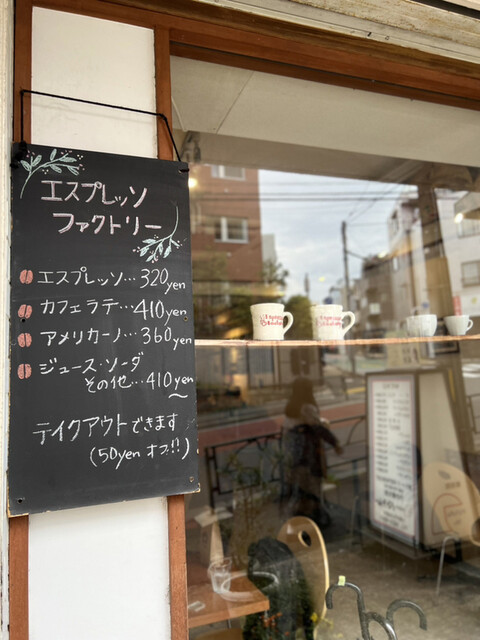 エスプレッソ
ファクトリー
エスプレッソ…320yen
カフェラテ…410yen
アメリカーノ…360yen
ジュース・ソーダ
その他…410yen
テイクアウトできます
(50yen オフ!!)